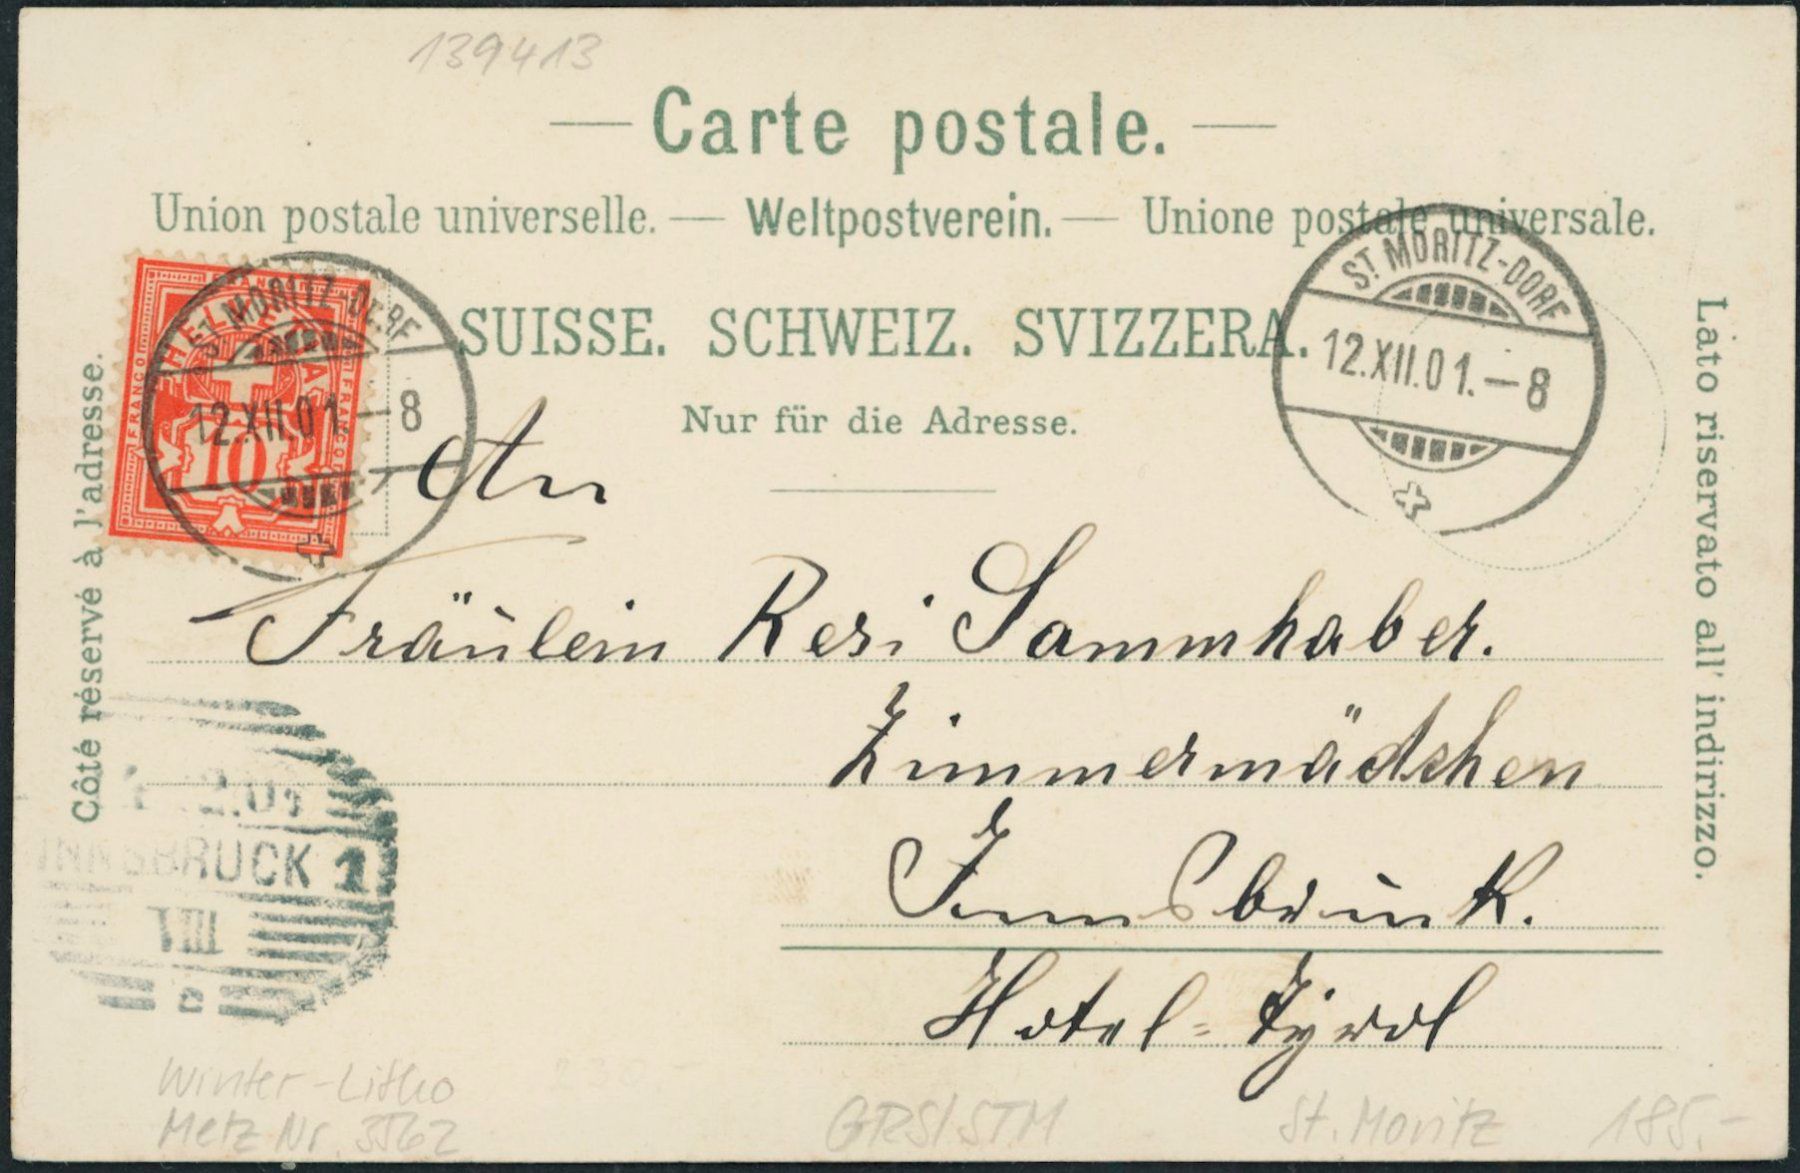 139413
— Carte postale. —
Union postale universelle. — Weltpostverein. — Unione postale universale.
SUISSE. SCHWEIZ. SVIZZERA.
Nur für die Adresse.
Côté réservé à l'adresse.
Lato riservato all' indirizzo.
HELVETIA
FRANCO
FRANCO
10
ST MORITZ-DORF
12.XII.01.—8
ST MORITZ-DORF
12.XII.01.—8
An
Fräulein Resi Sammhaber.
Zimmermädchen
Innsbruck.
Hotel-Tyrol
INNSBRUCK 1
VIII
c
Winter-Litho
Metz Nr. 3562
GRS/STM
St. Moritz
185.-